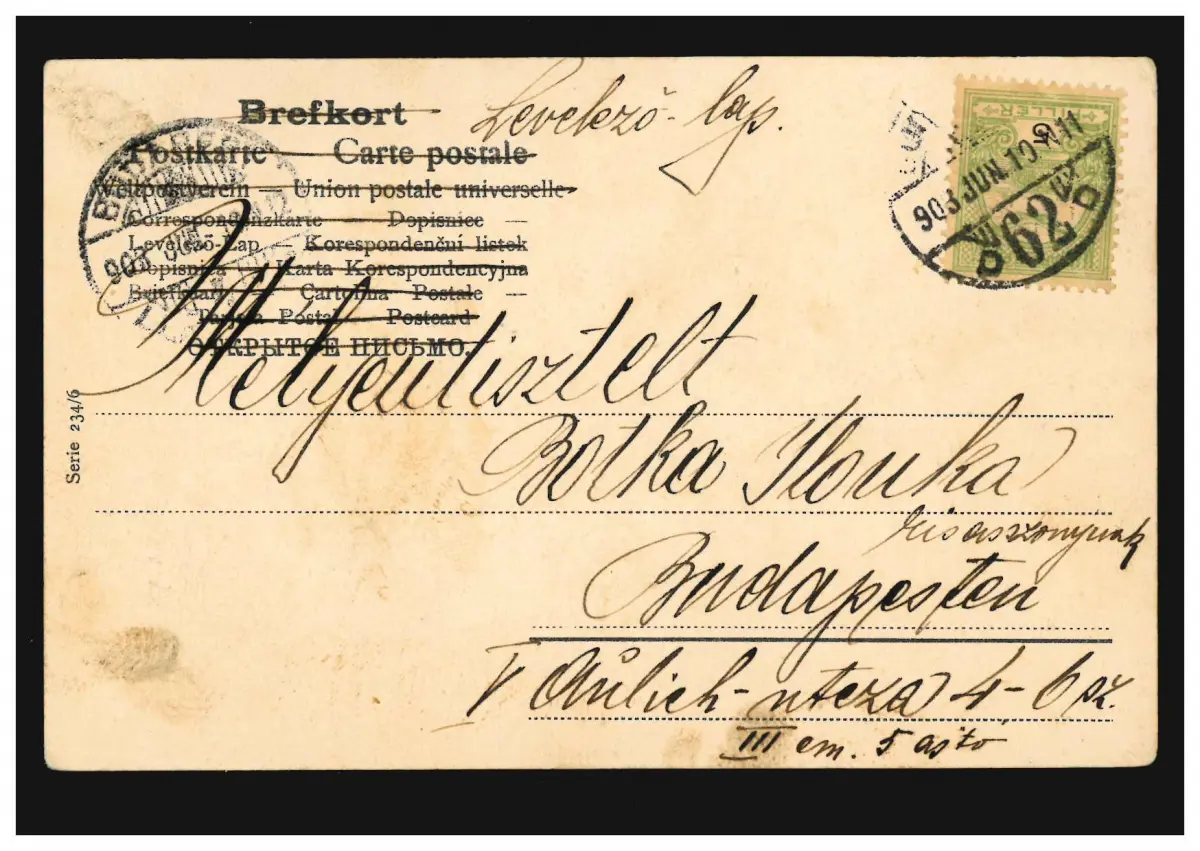 Brefkort
Levelező-lap.
Postkarte — Carte postale
Weltpostverein — Union postale universelle
Correspondenzkarte — Dopisnice —
Levelező-Lap — Korespondenční listek
Dopisnica — Karta Korespondencyjna
Briefkaart — Cartolina Postale —
Tarjeta Postal — Postcard
ОТКРЫТОЕ ПИСЬМО.
BUDAPEST
903 JUN
FILLÉR
5
903 JUN. 10. N 11
62
Serie 234/6
Mélyentisztelt
Botka Ilonka
kisasszonynak
Budapesten
V Aulich-utcza 4-6 sz.
III em. 5 ajtó